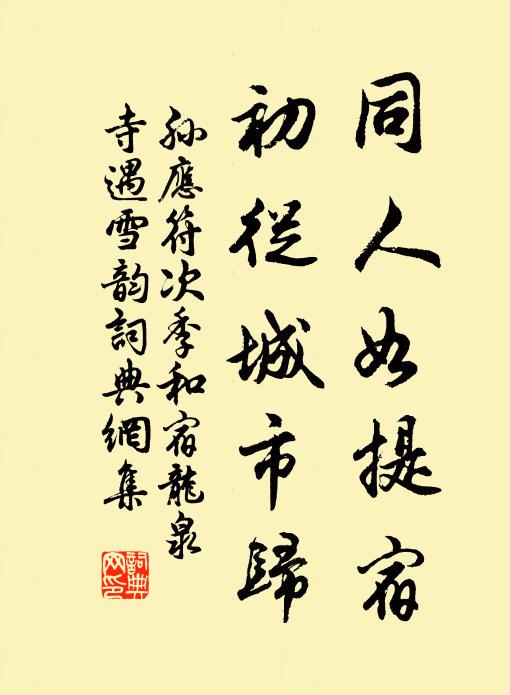 同人如提宿
初從城市歸
孫應符次季和宿龍泉
寺遇雪韵詞典網集
詞典網印